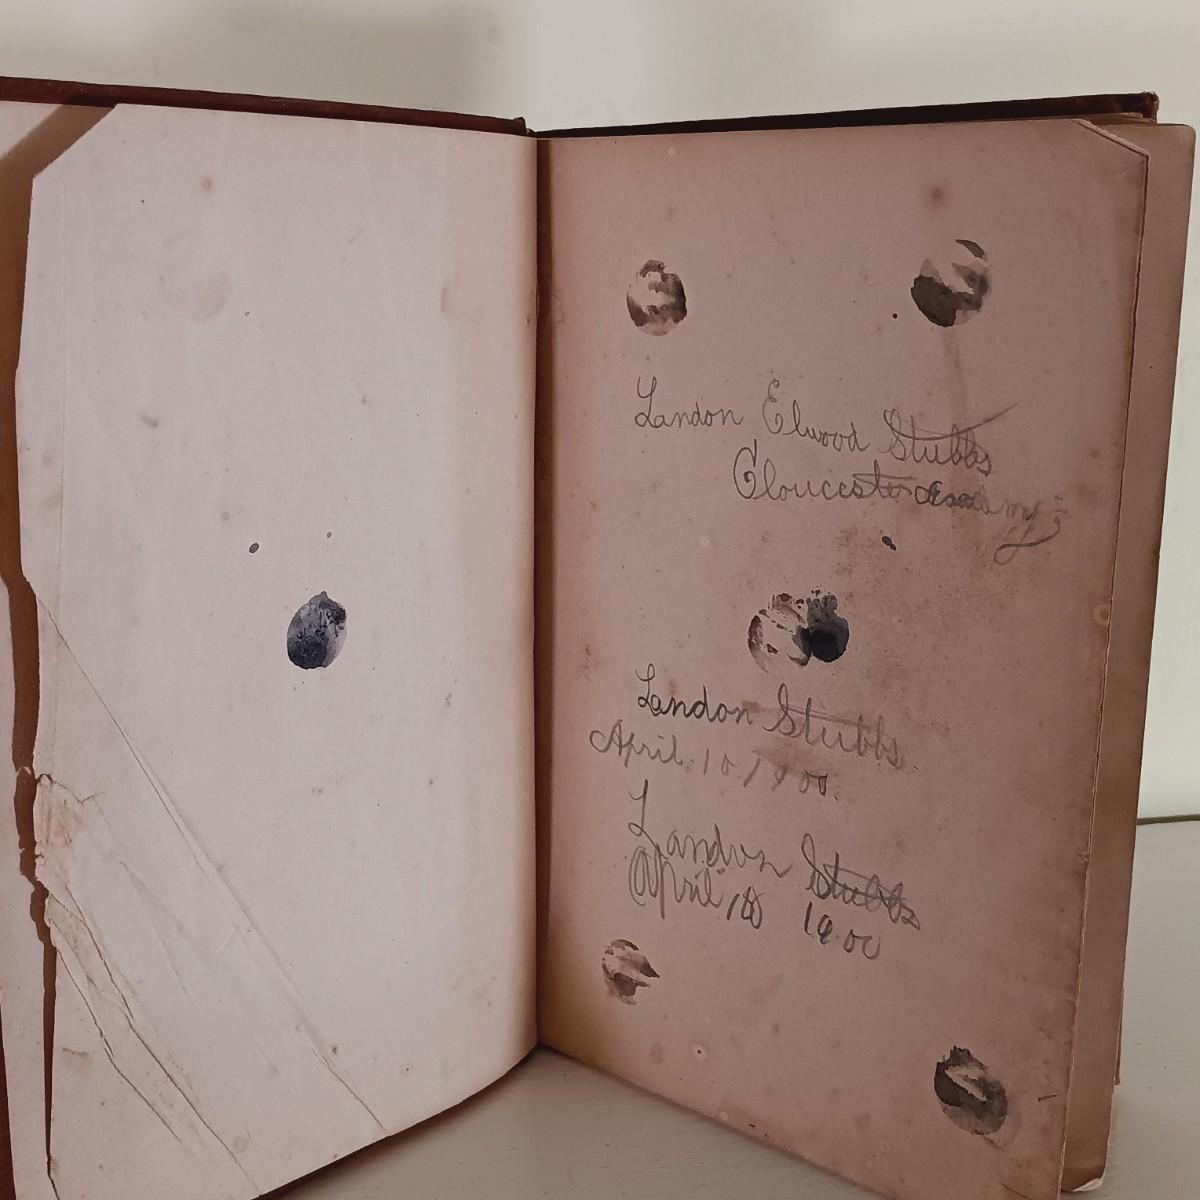 Landon Elwood Stubbs
Gloucester Academy
Landon Stubbs
April. 10. 1900.
Landon Stubbs
April 10 1900